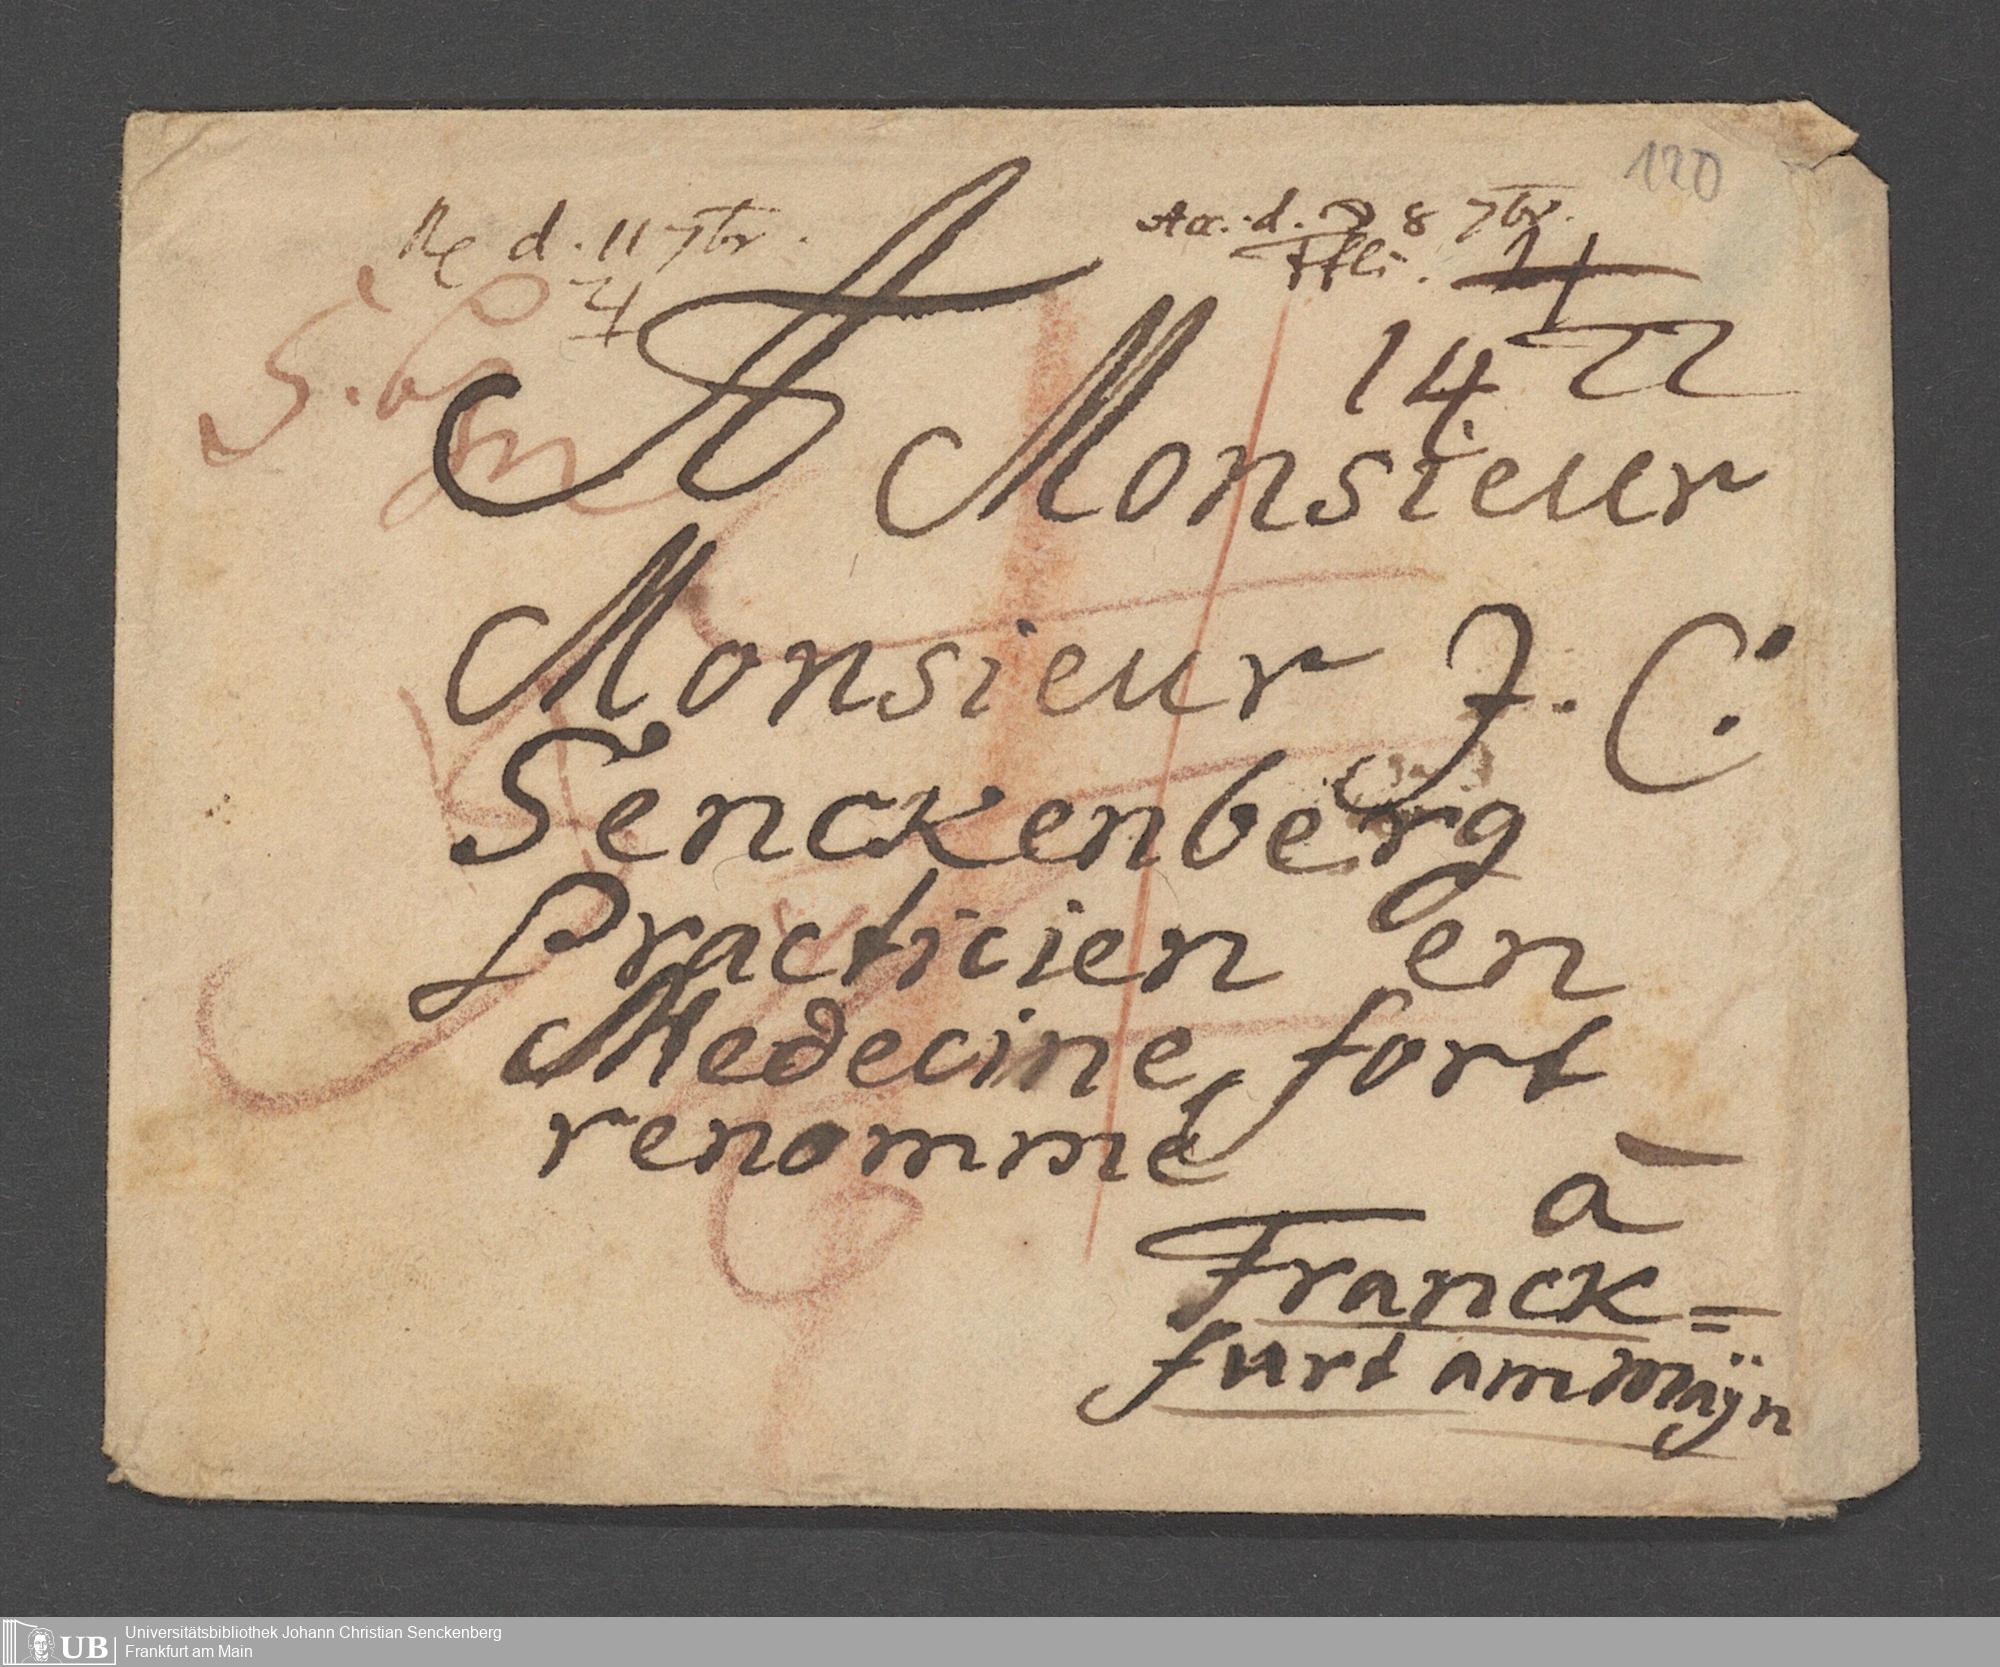 120
Re d. 11 7br.
Acc. d. 8 7br.
Ffti.
14
A Monsieur
Monsieur J. C.
Senckenberg
Practicien en
Medecine, fort
renommé
à
Franck=
furt am Mayn
UB
Universitätsbibliothek Johann Christian Senckenberg
Frankfurt am Main